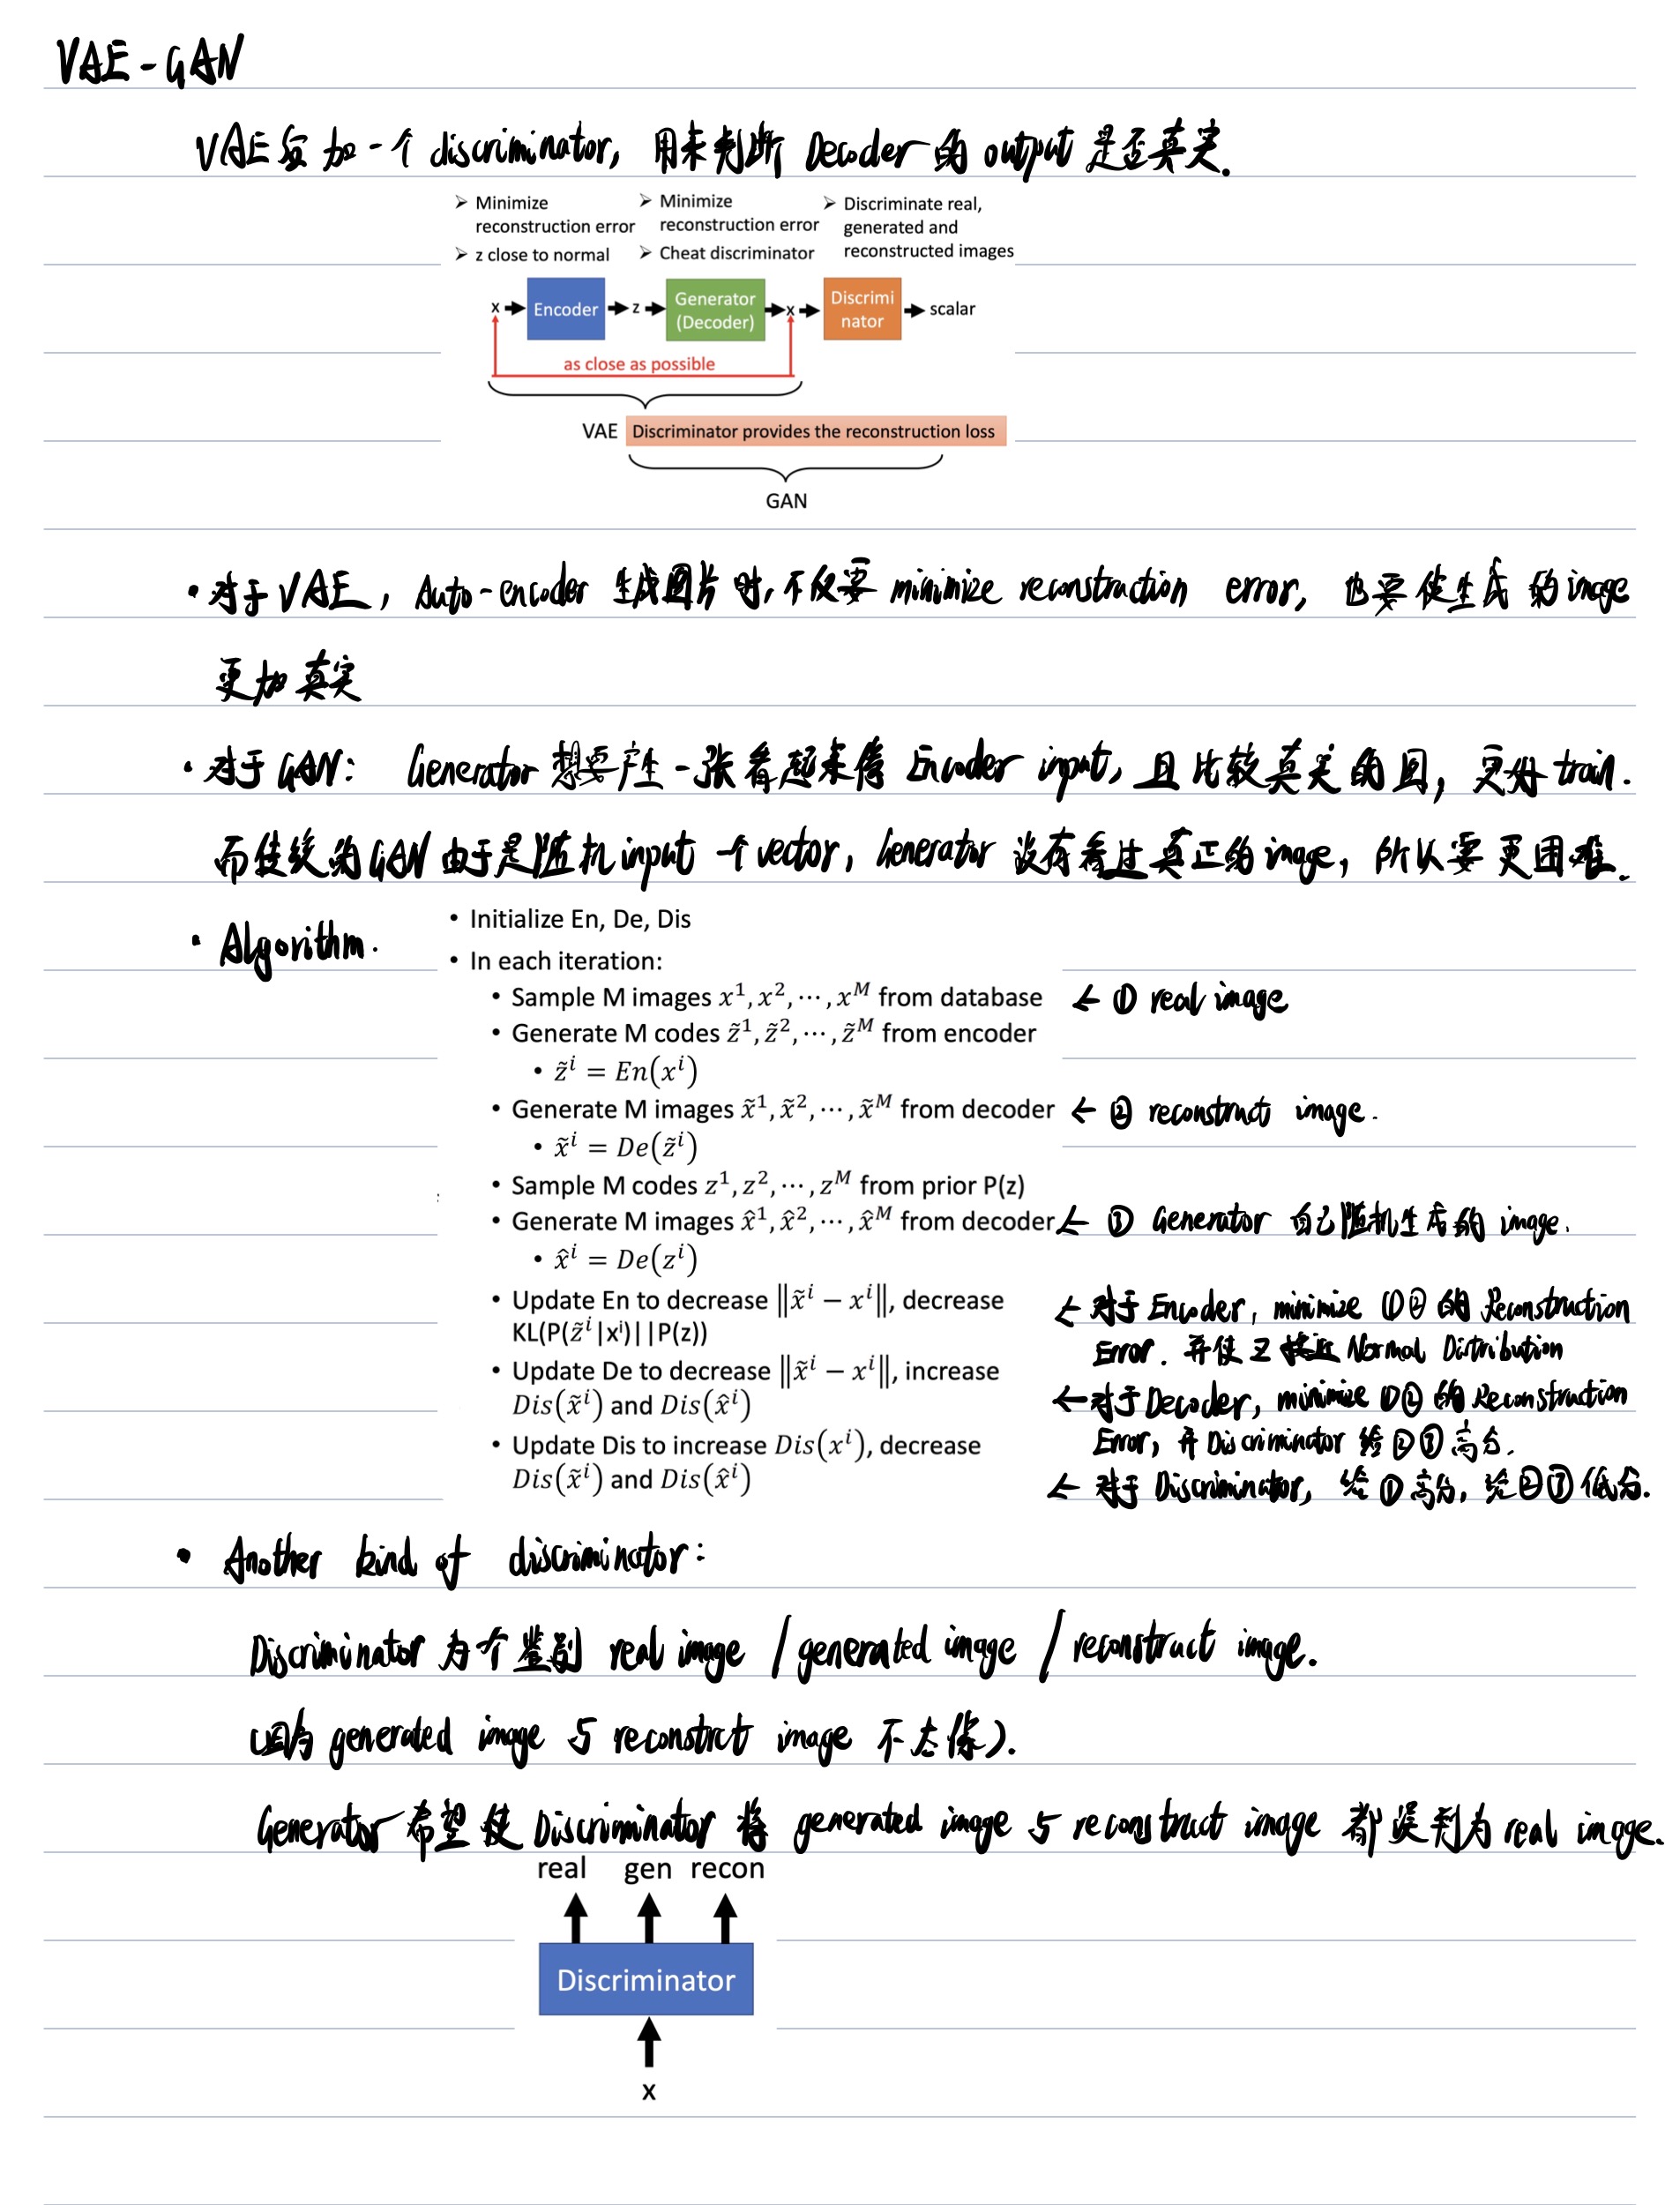 VAE-GAN
VAE后加一个discriminator, 用来判断Decoder的output是否真实.
➢ Minimize reconstruction error
➢ z close to normal
➢ Minimize reconstruction error
➢ Cheat discriminator
➢ Discriminate real, generated and reconstructed images
x
Encoder
z
Generator (Decoder)
x
Discriminator
scalar
as close as possible
VAE
Discriminator provides the reconstruction loss
GAN
• 对于VAE, Auto-encoder 生成图片时, 不仅要 minimize reconstruction error, 也要使生成的image
更加真实
• 对于GAN: Generator想要产生一张看起来像Encoder input, 且比较真实的图, 更好train.
而传统的GAN由于是随机input一个vector, Generator没有看过真正的image, 所以要更困难.
• Algorithm.
• Initialize En, De, Dis
• In each iteration:
• Sample M images x¹, x², ⋯, xᴹ from database ← ① real image
• Generate M codes z̃¹, z̃², ⋯, z̃ᴹ from encoder
• z̃ⁱ = En(xⁱ)
• Generate M images x̃¹, x̃², ⋯, x̃ᴹ from decoder ← ② reconstruct image.
• x̃ⁱ = De(z̃ⁱ)
• Sample M codes z¹, z², ⋯, zᴹ from prior P(z)
• Generate M images x̂¹, x̂², ⋯, x̂ᴹ from decoder ← ③ Generator 自己随机生成的image.
• x̂ⁱ = De(zⁱ)
• Update En to decrease ‖x̃ⁱ − xⁱ‖, decrease
KL(P(z̃ⁱ|xⁱ)||P(z))
← 对于Encoder, minimize ①②的Reconstruction
Error. 并使z接近Normal Distribution
• Update De to decrease ‖x̃ⁱ − xⁱ‖, increase
Dis(x̃ⁱ) and Dis(x̂ⁱ)
← 对于Decoder, minimize ①②的Reconstruction
Error, 并Discriminator给②③高分.
• Update Dis to increase Dis(xⁱ), decrease
Dis(x̃ⁱ) and Dis(x̂ⁱ)
← 对于Discriminator, 给①高分, 给②③低分.
• Another kind of discriminator:
Discriminator为个鉴别 real image / generated image / reconstruct image.
(因为 generated image 与 reconstrct image 不太像).
Generator希望使Discriminator将 generated image 与 reconstruct image 都误判为 real image.
real gen recon
Discriminator
x